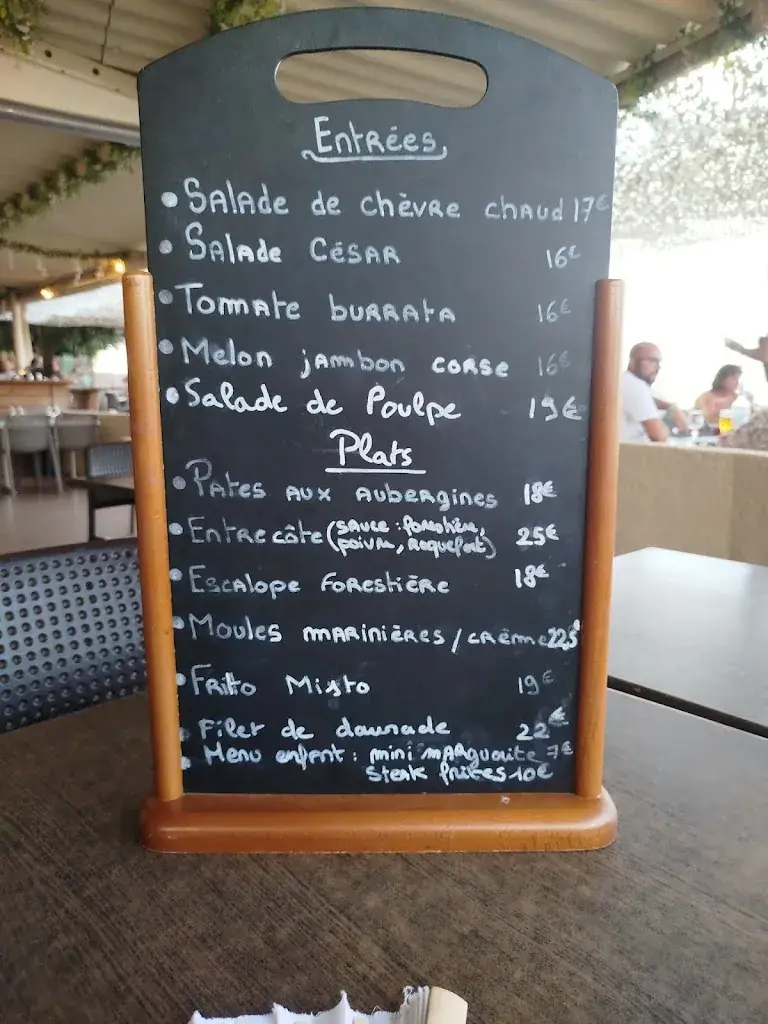 Entrées
• Salade de chèvre chaud 17€
• Salade César 16€
• Tomate burrata 16€
• Melon jambon corse 16€
• Salade de Poulpe 19€
Plats
• Pates aux aubergines 18€
• Entrecôte (sauce : forestière, poivre, roquefort) 25€
• Escalope forestière 18€
• Moules marinières / crème 22,5€
• Fritto Misto 19€
• Filet de daurade 22€
• Menu enfant : mini marguerite 7€
steak frites 10€